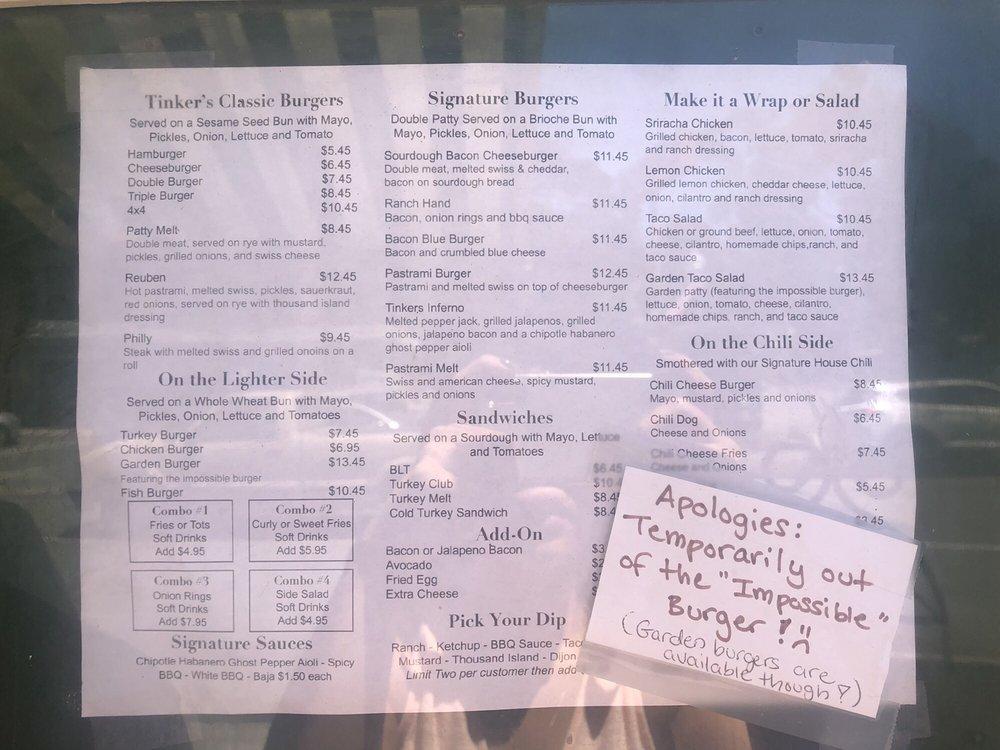 Tinker's Classic Burgers
Served on a Sesame Seed Bun with Mayo,
Pickles, Onion, Lettuce and Tomato
Hamburger $5.45
Cheeseburger $6.45
Double Burger $7.45
Triple Burger $8.45
4x4 $10.45
Patty Melt $8.45
Double meat, served on rye with mustard,
pickles, grilled onions, and swiss cheese
Reuben $12.45
Hot pastrami, melted swiss, pickles, sauerkraut,
red onions, served on rye with thousand island
dressing
Philly $9.45
Steak with melted swiss and grilled onoins on a
roll
On the Lighter Side
Served on a Whole Wheat Bun with Mayo,
Pickles, Onion, Lettuce and Tomatoes
Turkey Burger $7.45
Chicken Burger $6.95
Garden Burger $13.45
Featuring the impossible burger
Fish Burger $10.45
Combo #1
Fries or Tots
Soft Drinks
Add $4.95
Combo #2
Curly or Sweet Fries
Soft Drinks
Add $5.95
Combo #3
Onion Rings
Soft Drinks
Add $7.95
Combo #4
Side Salad
Soft Drinks
Add $4.95
Signature Sauces
Chipotle Habanero Ghost Pepper Aioli - Spicy
BBQ - White BBQ - Baja $1.50 each
Signature Burgers
Double Patty Served on a Brioche Bun with
Mayo, Pickles, Onion, Lettuce and Tomato
Sourdough Bacon Cheeseburger $11.45
Double meat, melted swiss & cheddar,
bacon on sourdough bread
Ranch Hand $11.45
Bacon, onion rings and bbq sauce
Bacon Blue Burger $11.45
Bacon and crumbled blue cheese
Pastrami Burger $12.45
Pastrami and melted swiss on top of cheeseburger
Tinkers Inferno $11.45
Melted pepper jack, grilled jalapenos, grilled
onions, jalapeno bacon and a chipotle habanero
ghost pepper aioli
Pastrami Melt $11.45
Swiss and american cheese, spicy mustard,
pickles and onions
Sandwiches
Served on a Sourdough with Mayo, Lettuce
and Tomatoes
BLT $6.45
Turkey Club $10.4
Turkey Melt $8.4
Cold Turkey Sandwich $8.4
Add-On
Bacon or Jalapeno Bacon $3
Avocado $2
Fried Egg
Extra Cheese
Pick Your Dip
Ranch - Ketchup - BBQ Sauce -
Mustard - Thousand Island - Dijon
Limit Two per customer then add
Make it a Wrap or Salad
Sriracha Chicken $10.45
Grilled chicken, bacon, lettuce, tomato, sriracha
and ranch dressing
Lemon Chicken $10.45
Grilled lemon chicken, cheddar cheese, lettuce,
onion, cilantro and ranch dressing
Taco Salad $10.45
Chicken or ground beef, lettuce, onion, tomato,
cheese, cilantro, homemade chips,ranch, and
taco sauce
Garden Taco Salad $13.45
Garden patty (featuring the impossible burger),
lettuce, onion, tomato, cheese, cilantro,
homemade chips, ranch, and taco sauce
On the Chili Side
Smothered with our Signature House Chili
Chili Cheese Burger $8.45
Mayo, mustard, pickles and onions
Chili Dog $6.45
Cheese and Onions
Chili Cheese Fries $7.45
Cheese and Onions
$5.45
Apologies:
Temporarily out
of the "Impossible"
Burger!
(Garden burgers are
available though!)